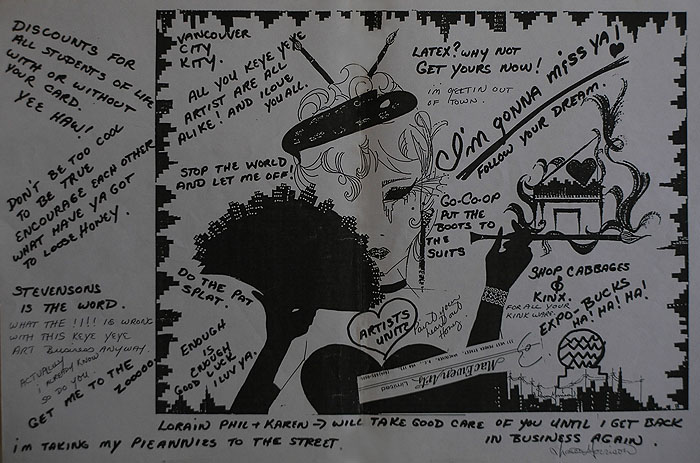 DISCOUNTS FOR
ALL STUDENTS OF LIFE
WITH OR WITHOUT
YOUR CARD.
YEE HAW!
DON'T BE TOO COOL
TO BE TRUE
ENCOURAGE EACH OTHER
WHAT HAVE YA GOT
TO LOOSE HONEY.
STEVENSONS
IS THE WORD.
WHAT THE !!!! IS WRONG
WITH THIS KEYE YEYE
ART BUSINESS ANYWAY.
ACTUALLY
I ALREADY KNOW
SO DO YOU.
GET ME TO THE
ZOOOOO
VANCOUVER
CITY
KITY.
ALL YOU KEYE YEYE
ARTIST ARE ALL
ALIKE! AND I LOVE
YOU ALL.
STOP THE WORLD
AND LET ME OFF!
DO THE PAT
SPLAT.
ENOUGH
IS
ENOUGH
GOOD LUCK
I LUV YA.
LATEX? WHY NOT
GET YOURS NOW!
I'M GETTIN OUT
OF TOWN.
I'M GONNA MISS YA!
FOLLOW YOUR DREAM.
GO-CO-OP
PUT THE
BOOTS TO
THE
SUITS
SHOP CABBAGES
&
KINX.
FOR ALL YOUR
KINK WARE.
EXPO-BUCKS
HA! HA! HA!
ARTISTS
UNITE
Paint your
heart out
Honey
MacEwen Arts
Limited
LORAIN PHIL + KAREN → WILL TAKE GOOD CARE OF YOU UNTIL I GET BACK
IN BUSINESS AGAIN.
I'M TAKING MY PIEANNIES TO THE STREET.